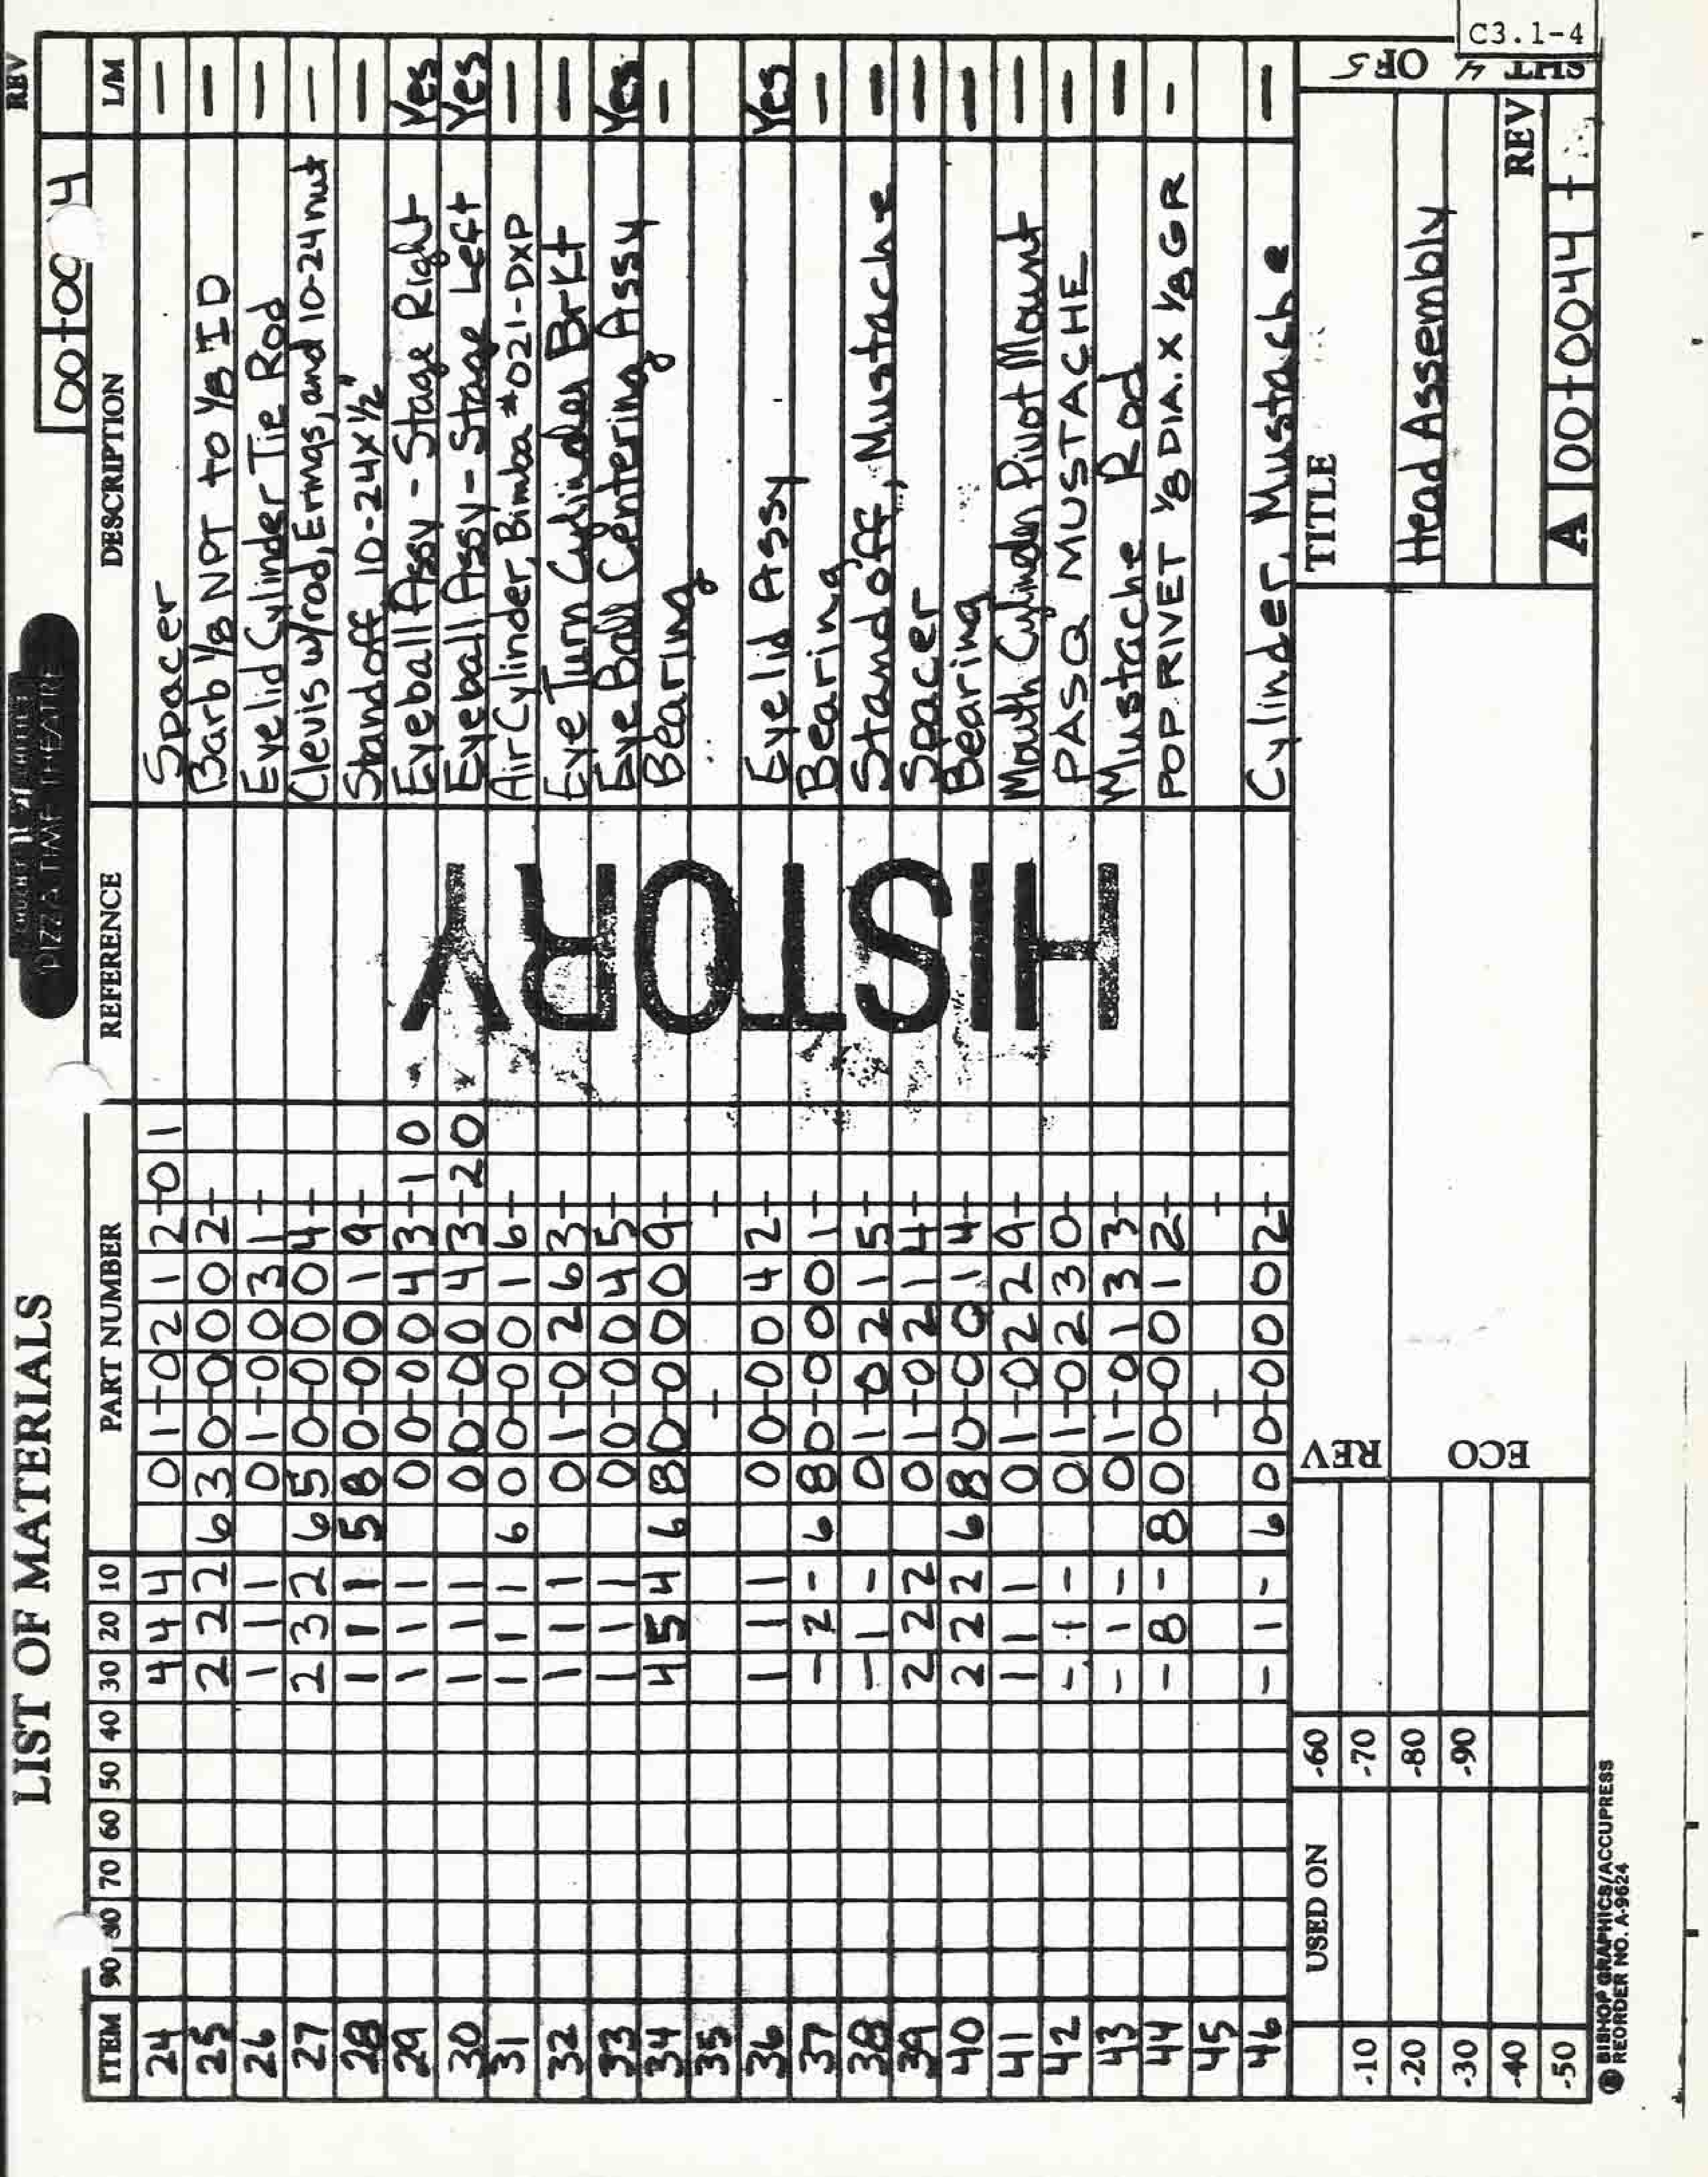 C3.1-4
LIST OF MATERIALS
PIZZA TIME THEATRE
REV
ITEM 90 80 70 60 50 40 30 20 10 PART NUMBER REFERENCE DESCRIPTION L/M
24 4 4 4 01-0212-01 Spacer —
25 2 2 2 630-0002- Barb 1/8 NPT to 1/8 ID —
26 1 1 1 01-0031- Eyelid Cylinder Tie Rod —
27 2 3 2 650-0004- Clevis w/rod, Erings, and 10-24 nut —
28 1 1 1 580-0019- Standoff 10-24 x 1/2" —
29 1 1 1 00-0043-10 Eyeball Assy - Stage Right Yes
30 1 1 1 00-0043-20 Eyeball Assy - Stage Left Yes
31 1 1 1 600-0016- Air Cylinder, Bimba #021-DXP —
32 1 1 1 01-0263- Eye Turn Cylinder Brkt —
33 1 1 1 00-0045- Eye Ball Centering Assy Yes
34 4 5 4 680-0009- Bearing —
35 - -
36 1 1 1 00-0042- Eyelid Assy Yes
37 - 2 - 680-0001- Bearing —
38 - 1 - 01-0215- Standoff, Mustache —
39 2 2 2 01-0214- Spacer —
40 2 2 2 680-0014- Bearing —
41 1 1 1 01-0229- Mouth Cylinder Pivot Mount —
42 - 1 - 01-0230- PASQ MUSTACHE —
43 - 1 - 01-0133- Mustache Rod —
44 - 8 - 800-0012- POP RIVET 1/8 DIA. X 1/8 GR —
45 - -
46 - 1 - 600-0002- Cylinder, Mustache —
HISTORY
USED ON
-10 -60
-20 -70
-30 -80
-40 -90
-50
REV
ECO
TITLE
Head Assembly
SHT 4 OF 5
REV
A 00-0044-
© BISHOP GRAPHICS/ACCUPRESS
REORDER NO. A-9624